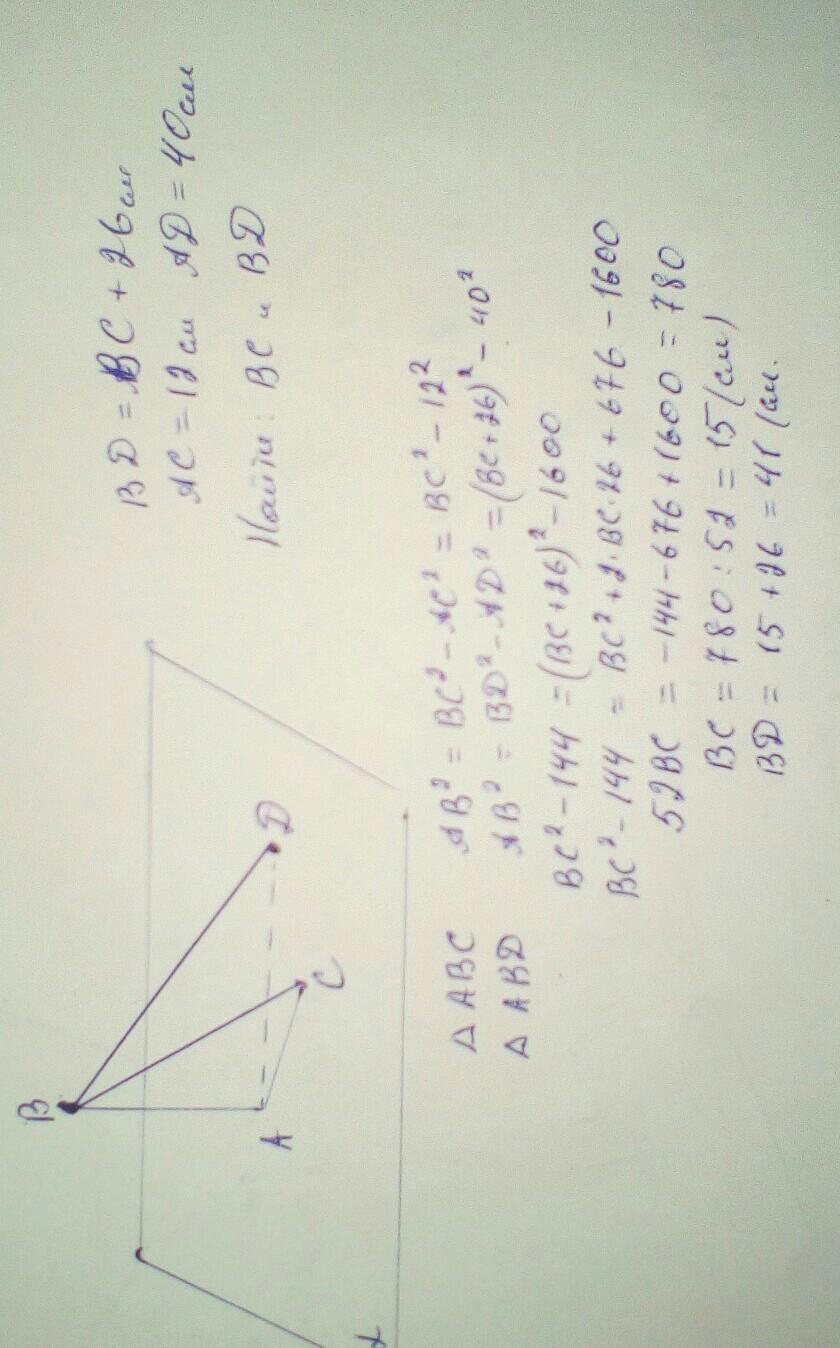 B
A
C
D
α
BD = BC + 26 см
AC = 12 см AD = 40 см
Найти: BC и BD
Δ ABC AB² = BC² - AC² = BC² - 12²
Δ ABD AB² = BD² - AD² = (BC + 26)² - 40²
BC² - 144 = (BC + 26)² - 1600
BC² - 144 = BC² + 2·BC·26 + 676 - 1600
52BC = -144 - 676 + 1600 = 780
BC = 780 : 52 = 15 (см)
BD = 15 + 26 = 41 (см.